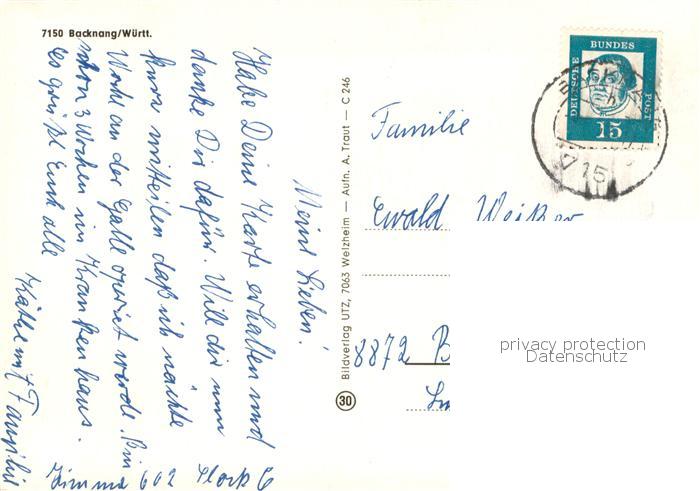 7150 Backnang/Württ.
Meine Lieben!
Habe Deine Karte erhalten und
danke Dir dafür. Will dir nun
kurz mitteilen daß ich nächste
Woche an der Galle operiert werde. Bin
schon 3 Wochen im Krankenhaus.
Es grüßt Euch alle
Käthe mit Familie
Zimmer 602 Stock 6
Bildverlag UTZ, 7063 Welzheim — Aufn. A. Traut — C 246
30
DEUTSCHE
BUNDES
POST
15
Familie
Ewald
8872 B
privacy protection
Datenschutz